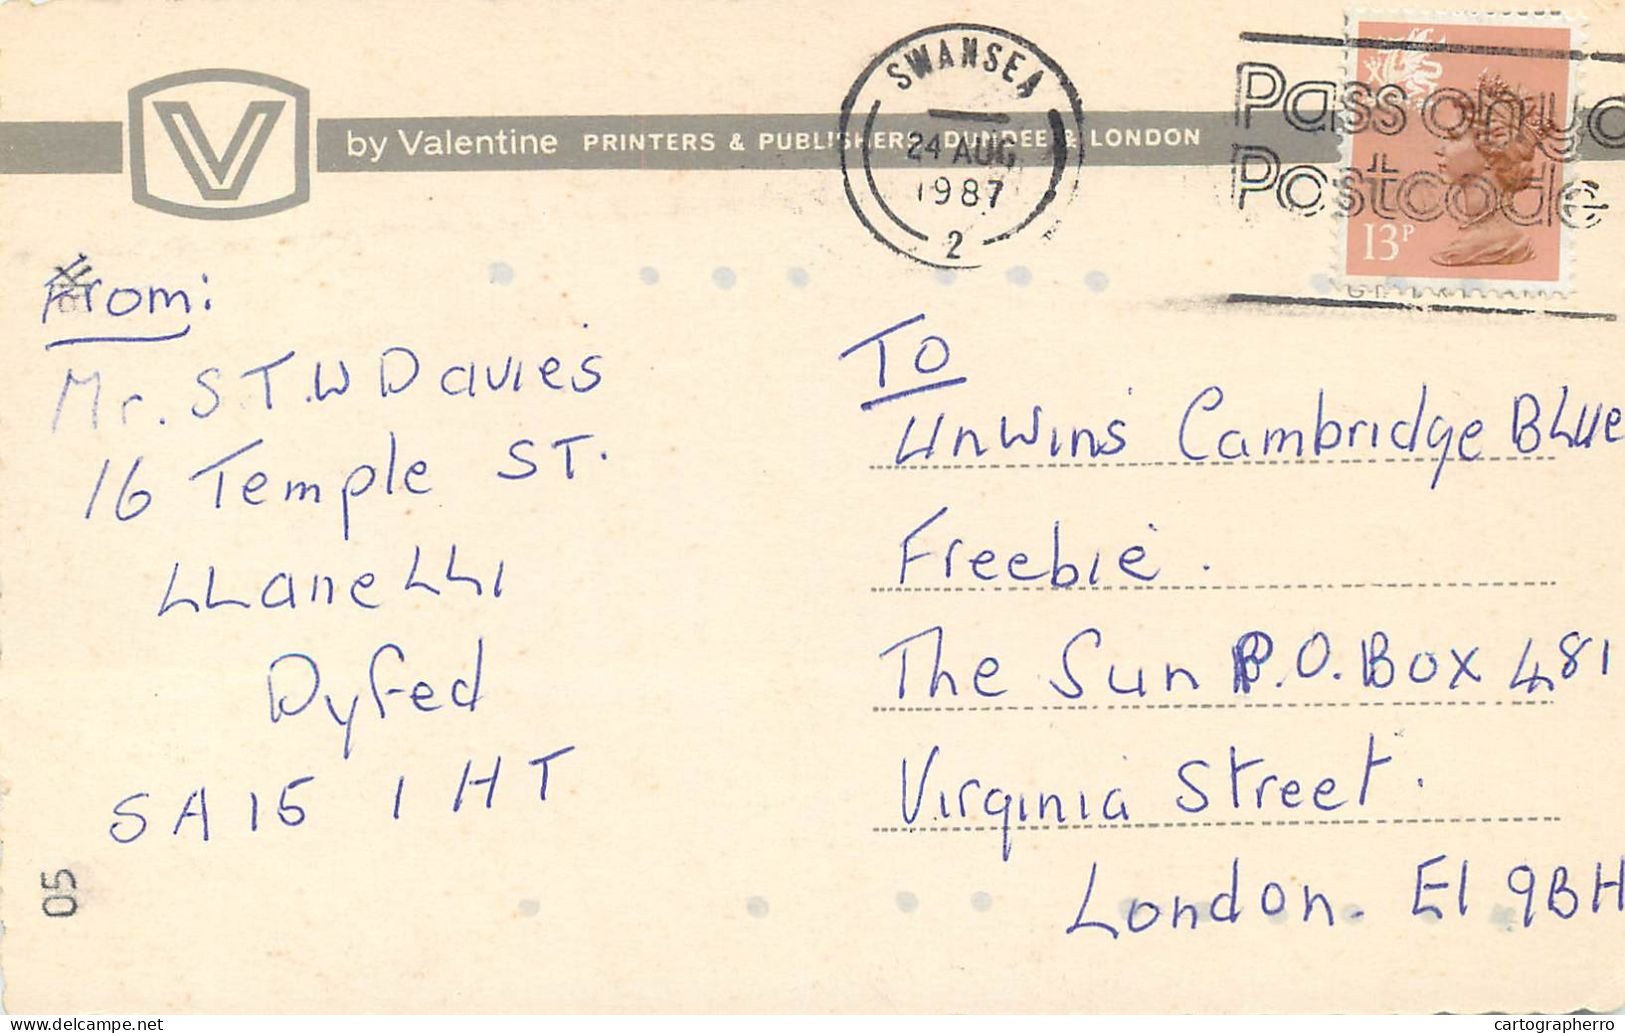 V by Valentine PRINTERS & PUBLISHERS, DUNDEE & LONDON
SWANSEA
24 AUG
1987
2
Pass on yo
Postcode
13P
From:
Mr. S.T.W Davies
16 Temple ST.
LLaneLLi
Dyfed
SA15 1HT
05
To
Unwins Cambridge BLue
Freebie.
The Sun P.O. Box 481
Virginia Street.
London. E1 9BH
cartographerro